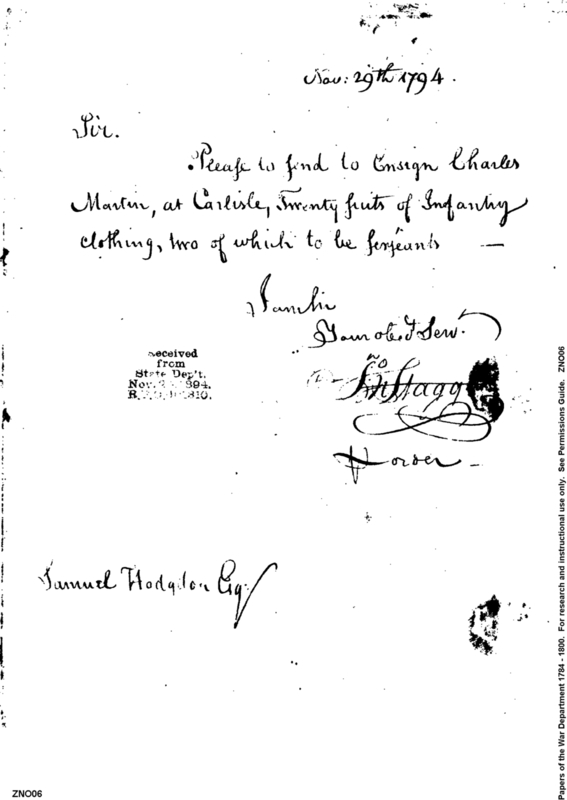 Nov: 29th 1794.
Sir.
Please to send to Ensign Charles
Martin, at Carlisle, Twenty suits of Infantry
clothing, two of which to be serjeants —
I am Sir
Your obed Serv.
Jno Stagg
Samuel Hodgdon Esq.
Received
from
State Dep't.
1894.
ZNO06
Papers of the War Department 1784 - 1800. For research and instructional use only. See Permissions Guide. ZNO06